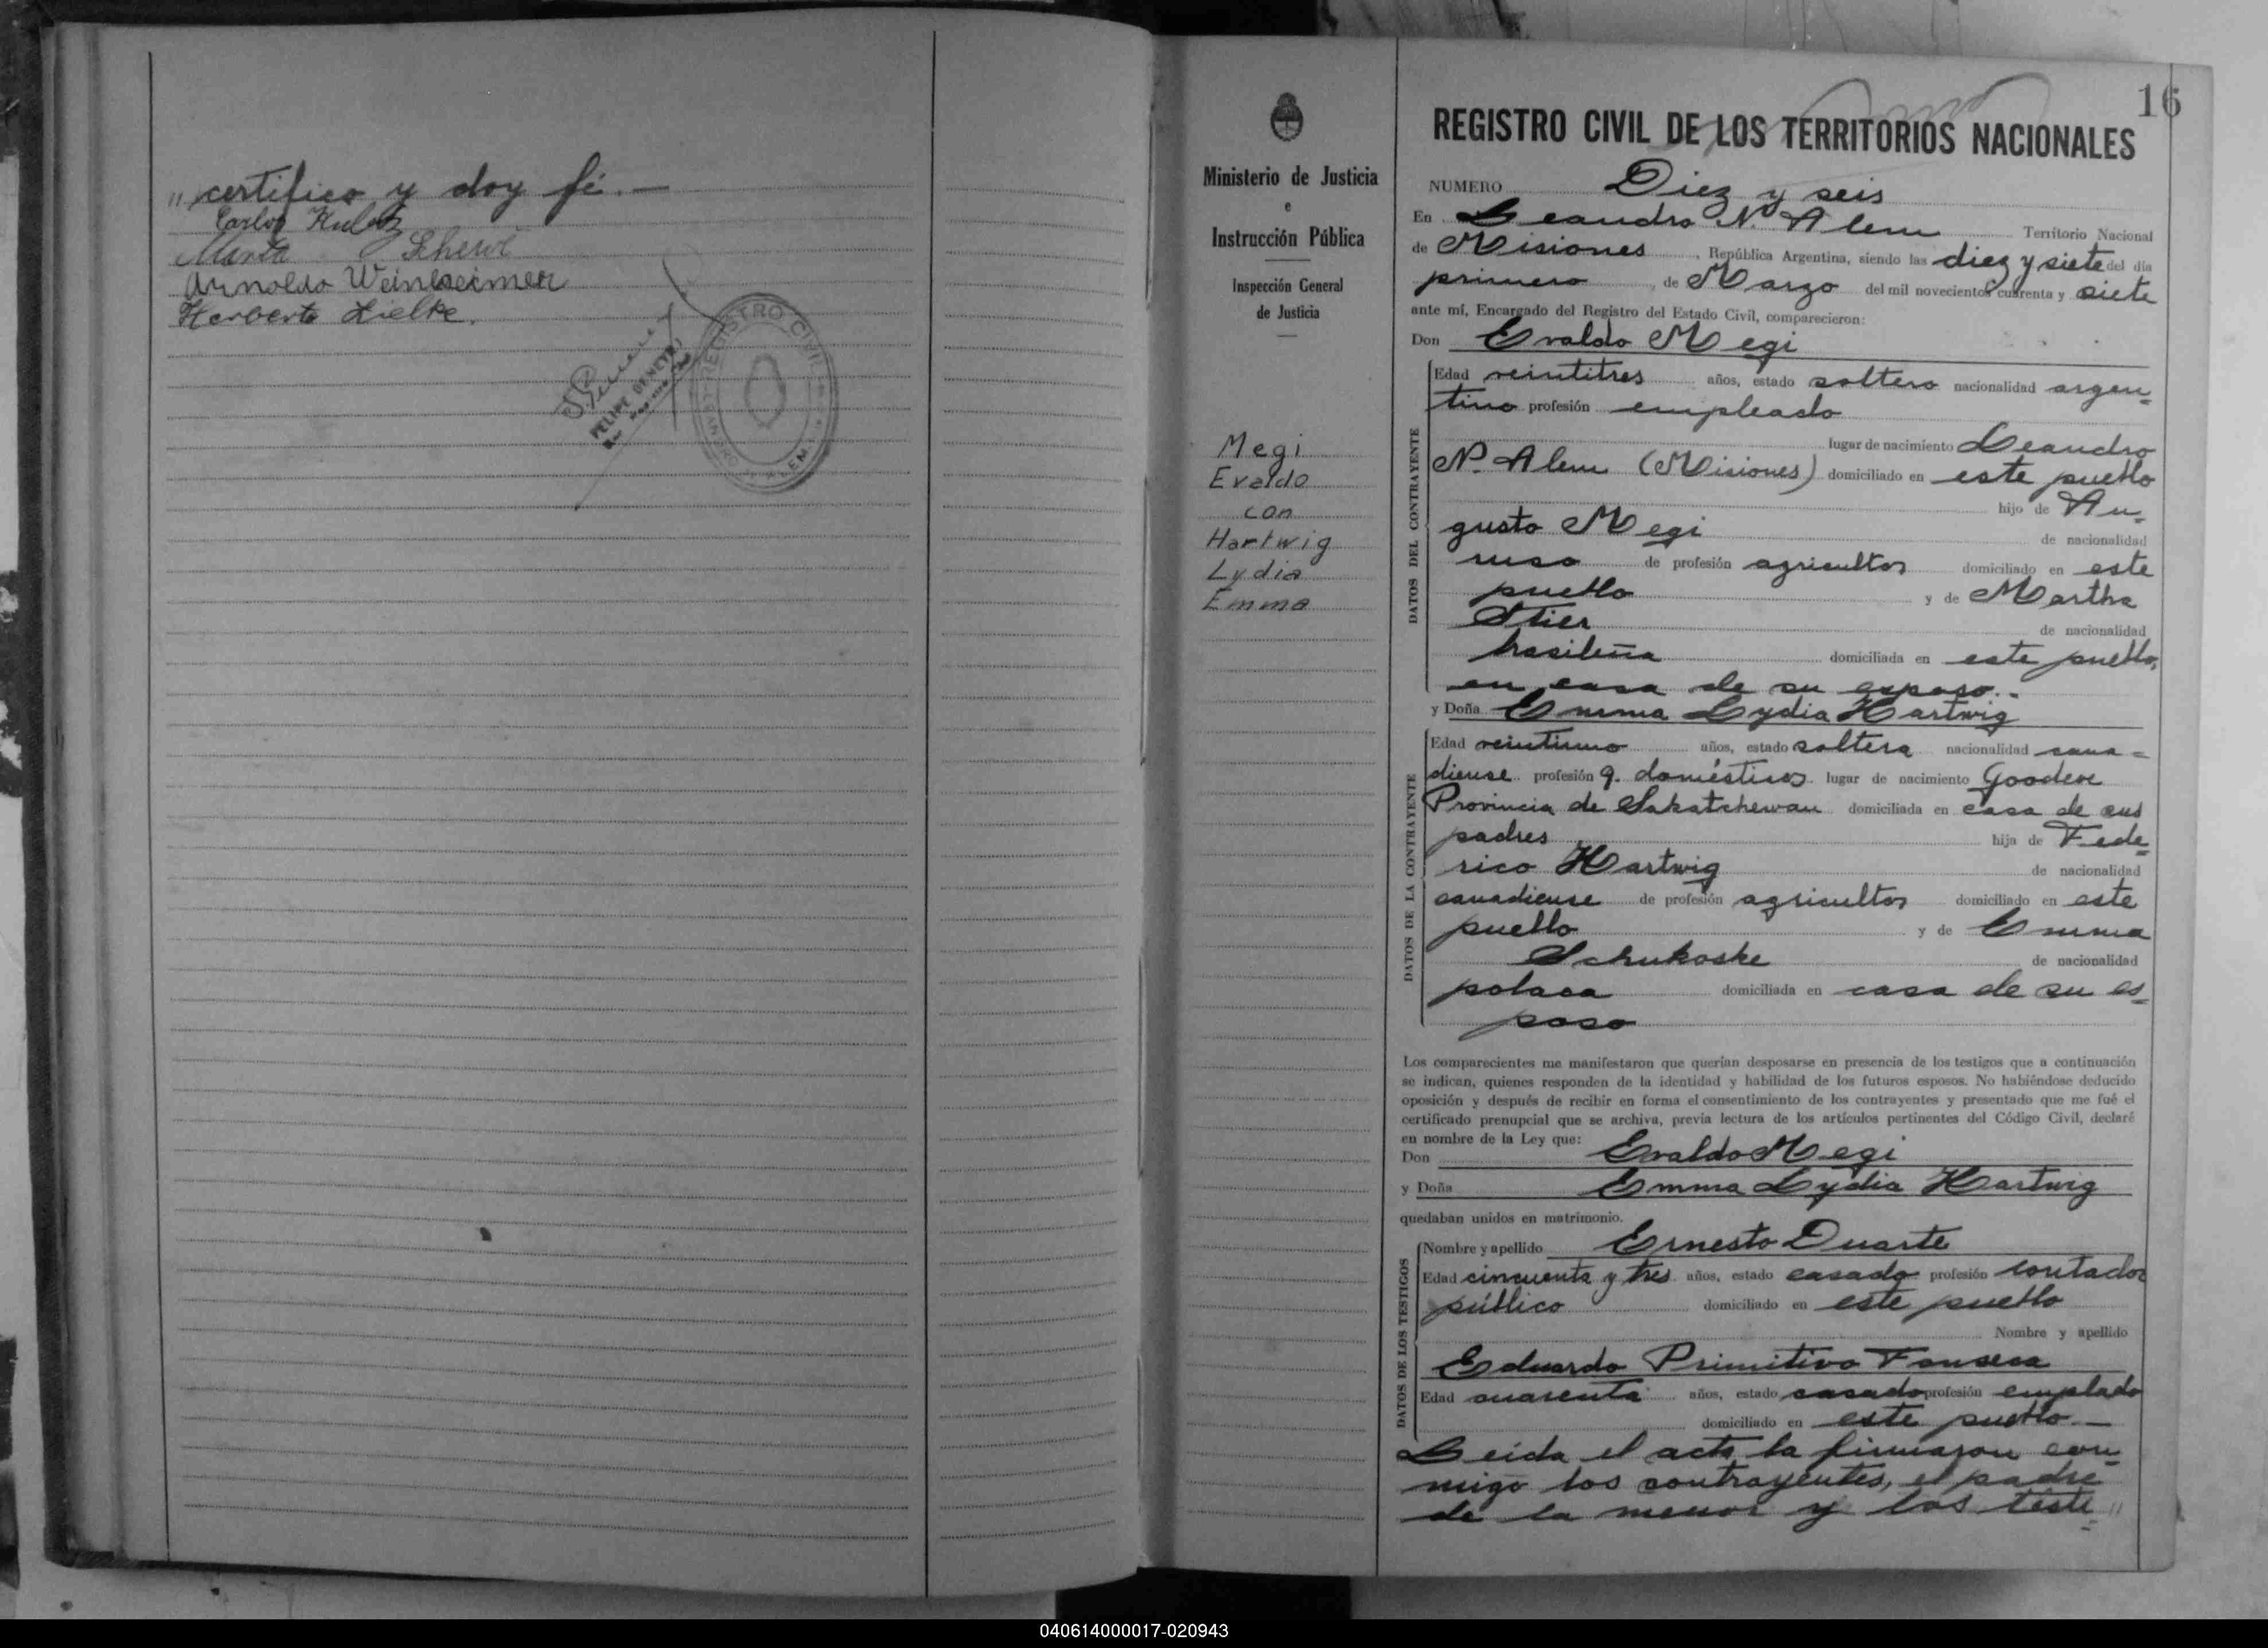 " certifico y doy fé.—
Carlos Kulotz
Marta Scherer
Arnoldo Weinheimer
Herberto Zielke.
FELIPE BENEYTO
REGISTRO CIVIL
LEANDRO N. ALEM
Ministerio de Justicia
e
Instrucción Pública
Inspección General
de Justicia
Megi
Evaldo
con
Hartwig
Lydia
Emma
16
REGISTRO CIVIL DE LOS TERRITORIOS NACIONALES
NUMERO Diez y seis
En Leandro N. Alem Territorio Nacional
de Misiones, República Argentina, siendo las diez y siete del día
primero, de Marzo del mil novecientos cuarenta y siete
ante mí, Encargado del Registro del Estado Civil, comparecieron:
Don Evaldo Megi
DATOS DEL CONTRAYENTE
Edad veintitres años, estado soltero nacionalidad argen=
tino profesión empleado
lugar de nacimiento Leandro
N. Alem (Misiones) domiciliado en este pueblo
hijo de Au=
gusto Megi de nacionalidad
ruso de profesión agricultor domiciliado en este
pueblo y de Martha
Stier de nacionalidad
brasileña domiciliada en este pueblo,
en casa de su esposo.-
y Doña Emma Lydia Hartwig
DATOS DE LA CONTRAYENTE
Edad veintiuno años, estado soltera nacionalidad cana=
diense profesión q. domésticos lugar de nacimiento Goodeve
Provincia de Sakatchewan domiciliada en casa de sus
padres hija de Fede=
rico Hartwig de nacionalidad
canadiense de profesión agricultor domiciliado en este
pueblo y de Emma
Schukoske de nacionalidad
polaca domiciliada en casa de su es=
poso
Los comparecientes me manifestaron que querían desposarse en presencia de los testigos que a continuación
se indican, quienes responden de la identidad y habilidad de los futuros esposos. No habiéndose deducido
oposición y después de recibir en forma el consentimiento de los contrayentes y presentado que me fué el
certificado prenupcial que se archiva, previa lectura de los artículos pertinentes del Código Civil, declaré
en nombre de la Ley que:
Don Evaldo Megi
y Doña Emma Lydia Hartwig
quedaban unidos en matrimonio.
DATOS DE LOS TESTIGOS
Nombre y apellido Ernesto Duarte
Edad cincuenta y tres años, estado casado profesión contador
público domiciliado en este pueblo
Nombre y apellido
Eduardo Primitivo Fonseca
Edad cuarenta años, estado casado profesión emplado
domiciliado en este pueblo.—
Leída el acta, la firmaron con=
migo los contrayentes, el padre
de la menor y los testi= "
040614000017-020943